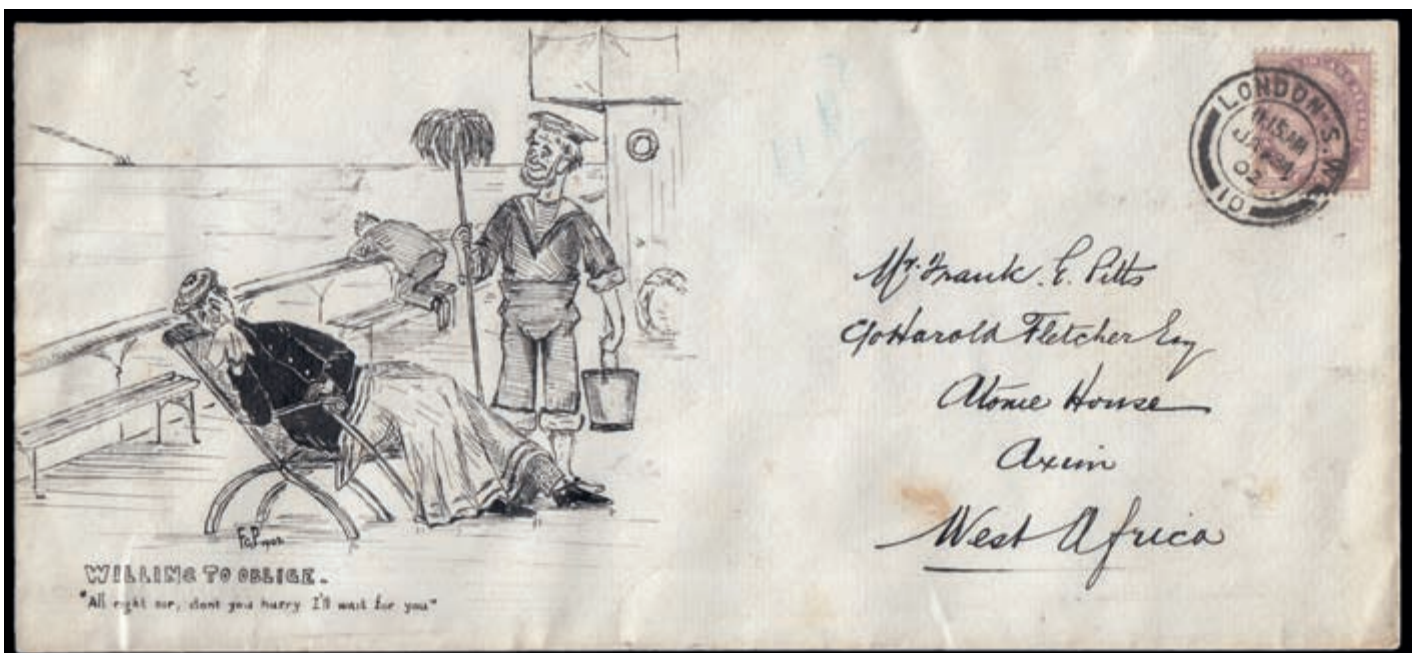 LONDON. S.W.
11.15 AM
JA
02
10
Mr. Frank. E. Pitts
c/o Harold Fletcher Esq
House
Axim
West Africa
WILLING TO OBLIGE.
"All right dont you hurry I'll wait for you"